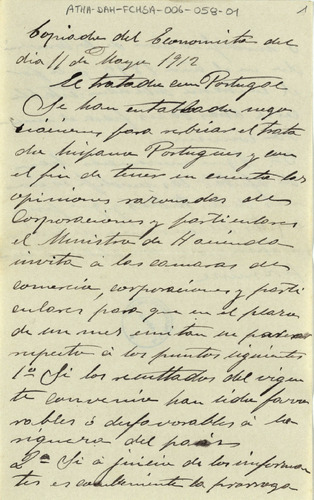 ATHA-DAH-FCHSA-006-058-01
1
Copiado del Economista del
dia 11 de Mayo 1912
El tratado con Portugal
Se han entablado nego
ciaciones para revisar el trata
do hispano Portugues y con
el fin de tener en cuenta las
opiniones razonadas de
Corporaciones y particulares
el Ministro de Hacienda
invita á las camaras de
comercio, corporaciones y parti
culares para que en el plazo
de un mes emitan su
respecto á los puntos siguientes
1º Si los resultados del vigen
te convenio han sido favo
rables ó desfavorables á la
riqueza del pais
2º Si á juicio de los informan
tes es conveniente la prorroga